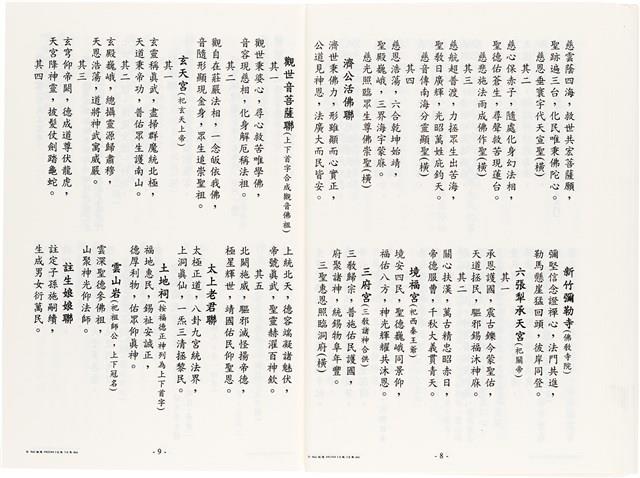 慈雲蔭四海，救世共宏菩薩願，
聖跡遍三台，化民唯秉佛陀心。
慈恩垂寰宇代天宣聖(橫)
其二
慈心保赤子，隨處化身幻法相，
聖德佑蒼生，尋聲救苦現蓮台。
慈悲施法雨成佛作聖(橫)
其三
慈航超普渡，力拯眾生出苦海，
聖教日廣輝，光昭萬姓庇鈞天。
慈音傳南海分靈顯聖(橫)
其四
慈恩浩蕩，六合乾坤始靖，
聖殿巍峨，三界海宇蒙庥。
慈光照臨眾生尊佛崇聖(橫)
濟公活佛聯
濟世秉佛力，形雖顯而心實正，
公道見神恩，法廣大而民皆安。
新竹彌勒寺(佛教寺院)
彌堅信念證禪心，法門共進，
勒馬懸崖猛回頭，彼岸同登。
六張犁承天宮(祀關帝)
其一
承恩護國，震古鑠今蒙聖佑，
天道拯民，驅邪錫福沐神庥。
其二
關心扶漢，萬古精忠昭赤日，
帝德服曹，千秋大義貫青天。
境福宮(祀西秦王爺)
境安四民，聖德巍峨同景仰，
福佑八方，神光輝耀共沐恩。
三府宮(三教諸神合供)
三教歸宗，普施佑民護國，
府聚諸神，統錫物阜年豐。
三聖惠恩照臨洞府(橫)
- 8 -
觀世音菩薩聯(上下首字合成觀音佛祖)
其一
觀世秉婆心，尋心救苦唯學佛，
音容現慈相，化身解厄稱法祖。
其二
觀自在莊嚴法相，一念皈依我佛，
音隨形顯現金身，眾生追崇聖祖。
玄天宮(祀玄天上帝)
其一
玄靈稱真武，盡掃群魔統北極，
天道秉帝功，普佑眾生護南山。
其二
玄殿巍峨，總攝靈源歸肅穆，
天恩浩蕩，道將神武寓威嚴。
其三
玄穹仰帝闕，德成道尊伏龍虎，
天宮降神靈，披髮仗劍踏龜蛇。
其四
上統北天，德容端凝諸魅伏，
帝號真武，聖靈赫濯百神欽。
其五
北闕施威，驅邪滅怪揚帝德，
極星輝世，靖國佑民仰聖恩。
太上老君聯
太極正道，八卦九宮統法界，
上洞真仙，一炁三清拯黎民。
土地祠(按福德正神列為上下首字)
福地惠民，錫祉安誠正，
德厚利物，佑眾仰真神。
雲山岩(祀祖師公，上下冠名)
雲深聖德參佛祖，
山聚神光仰法師。
註生娘娘聯
註定子孫施嗣續，
生成男女衍萬民。
- 9 -